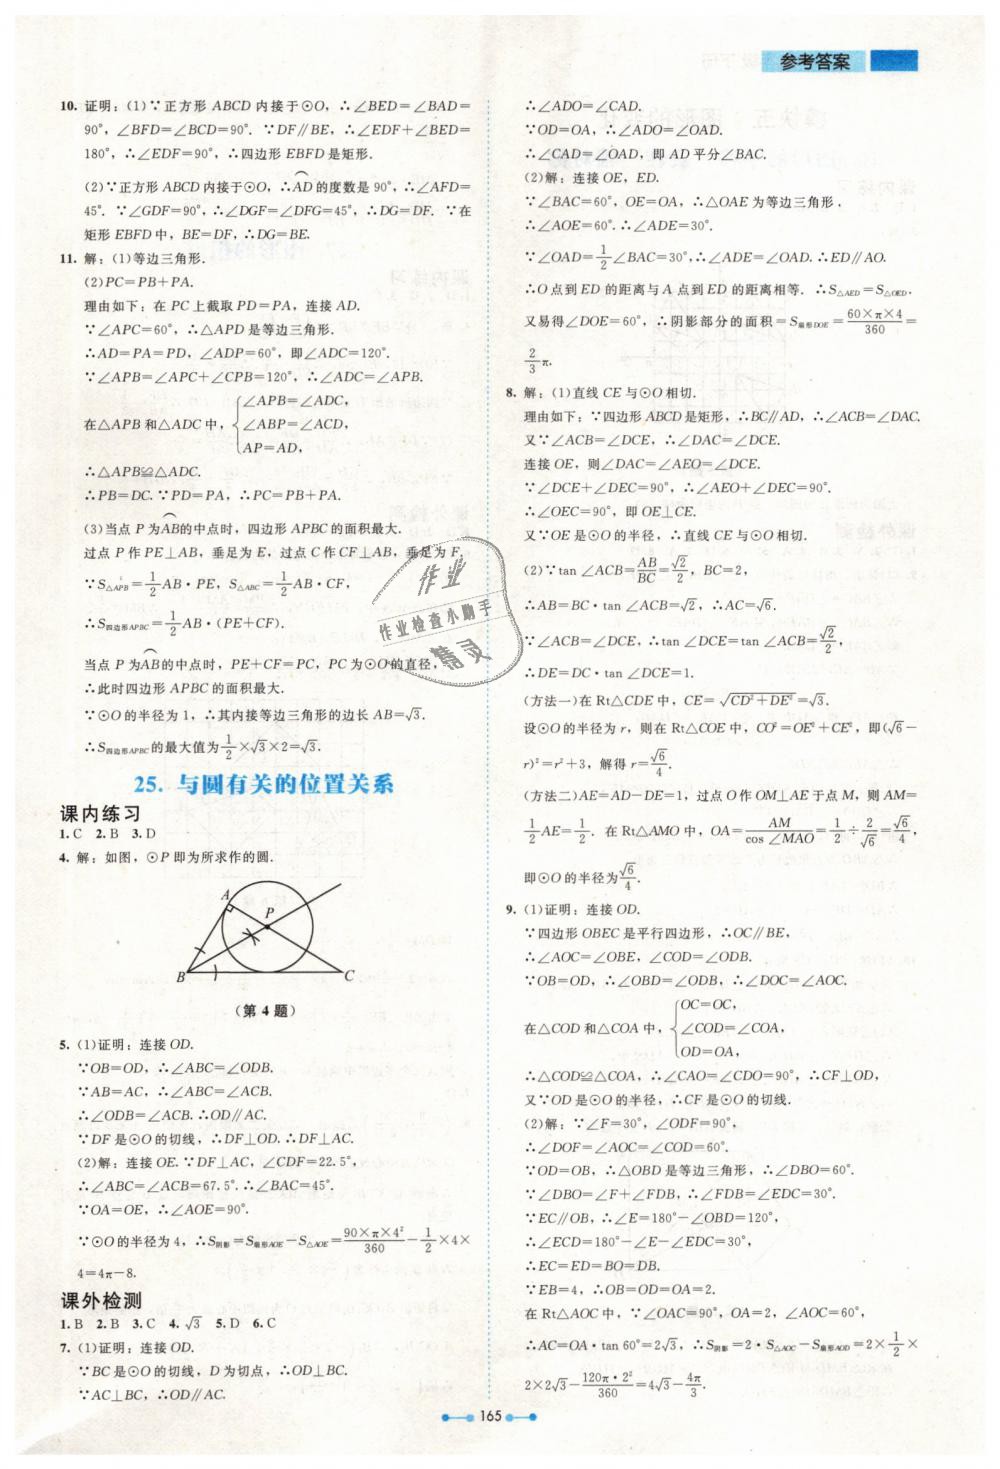 参考答案
10. 证明：(1)∵正方形 ABCD 内接于⊙O，∴∠BED=∠BAD=
90°，∠BFD=∠BCD=90°. ∵DF∥BE，∴∠EDF+∠BED=
180°，∴∠EDF=90°，∴四边形 EBFD 是矩形.
(2)∵正方形 ABCD 内接于⊙O，∴A͡D 的度数是 90°，∴∠AFD=
45°. ∵∠GDF=90°，∴∠DGF=∠DFG=45°，∴DG=DF. ∵在
矩形 EBFD 中，BE=DF，∴DG=BE.
11. 解：(1)等边三角形.
(2)PC=PB+PA.
理由如下：在 PC 上截取 PD=PA，连接 AD.
∵∠APC=60°，∴△APD 是等边三角形.
∴AD=PA=PD，∠ADP=60°，即∠ADC=120°.
∵∠APB=∠APC+∠CPB=120°，∴∠ADC=∠APB.
在△APB 和△ADC 中，{∠APB=∠ADC，
∠ABP=∠ACD，
AP=AD，
∴△APB≌△ADC.
∴PB=DC. ∵PD=PA，∴PC=PB+PA.
(3)当点 P 为A͡B的中点时，四边形 APBC 的面积最大.
过点 P 作 PE⊥AB，垂足为 E，过点 C 作 CF⊥AB，垂足为 F，
∵S△APB=1/2 AB·PE，S△ABC=1/2 AB·CF，
∴S四边形APBC=1/2 AB·(PE+CF).
当点 P 为A͡B的中点时，PE+CF=PC，PC 为⊙O 的直径，
∴此时四边形 APBC 的面积最大.
∵⊙O 的半径为 1，∴其内接等边三角形的边长 AB=√3.
∴S四边形APBC的最大值为 1/2×√3×2=√3.
25. 与圆有关的位置关系
课内练习
1. C 2. B 3. D
4. 解：如图，⊙P 即为所求作的圆.
A
P
B
C
(第 4 题)
5. (1)证明：连接 OD.
∵OB=OD，∴∠ABC=∠ODB.
∵AB=AC，∴∠ABC=∠ACB.
∴∠ODB=∠ACB. ∴OD∥AC.
∵DF 是⊙O 的切线，∴DF⊥OD. ∴DF⊥AC.
(2)解：连接 OE. ∵DF⊥AC，∠CDF=22.5°，
∴∠ABC=∠ACB=67.5°. ∴∠BAC=45°.
∵OA=OE，∴∠AOE=90°.
∵⊙O 的半径为 4，∴S阴影=S扇形AOE−S△AOE=90×π×4²/360−1/2×4×
4=4π−8.
课外检测
1. B 2. B 3. C 4. √3 5. D 6. C
7. (1)证明：连接 OD.
∵BC 是⊙O 的切线，D 为切点，∴OD⊥BC.
∵AC⊥BC，∴OD∥AC.
∴∠ADO=∠CAD.
∵OD=OA，∴∠ADO=∠OAD.
∴∠CAD=∠OAD，即 AD 平分∠BAC.
(2)解：连接 OE，ED.
∵∠BAC=60°，OE=OA，∴△OAE 为等边三角形，
∴∠AOE=60°. ∴∠ADE=30°.
∵∠OAD=1/2∠BAC=30°，∴∠ADE=∠OAD. ∴ED∥AO.
∴O 点到 ED 的距离与 A 点到 ED 的距离相等. ∴S△AED=S△OED.
又易得∠DOE=60°，∴阴影部分的面积=S扇形DOE=60×π×4/360=
2/3 π.
8. 解：(1)直线 CE 与⊙O 相切.
理由如下：∵四边形 ABCD 是矩形，∴BC∥AD，∴∠ACB=∠DAC.
又∵∠ACB=∠DCE，∴∠DAC=∠DCE.
连接 OE，则∠DAC=∠AEO=∠DCE.
∵∠DCE+∠DEC=90°，∴∠AEO+∠DEC=90°.
∴∠OEC=90°，即 OE⊥CE.
又∵OE 是⊙O 的半径，∴直线 CE 与⊙O 相切.
(2)∵tan ∠ACB=AB/BC=√2/2，BC=2，
∴AB=BC·tan ∠ACB=√2，∴AC=√6.
∵∠ACB=∠DCE，∴tan ∠DCE=tan ∠ACB=√2/2，
∴DE=DC·tan ∠DCE=1.
(方法一)在 Rt△CDE 中，CE=√(CD²+DE²)=√3.
设⊙O 的半径为 r，则在 Rt△COE 中，CO²=OE²+CE²，即(√6−
r)²=r²+3，解得 r=√6/4.
(方法二)AE=AD−DE=1，过点 O 作 OM⊥AE 于点 M，则 AM=
1/2 AE=1/2. 在 Rt△AMO 中，OA=AM/cos ∠MAO=1/2÷2/√6=√6/4，
即⊙O 的半径为 √6/4.
9. (1)证明：连接 OD.
∵四边形 OBEC 是平行四边形，∴OC∥BE，
∴∠AOC=∠OBE，∠COD=∠ODB.
∵OB=OD，∴∠OBD=∠ODB，∴∠DOC=∠AOC.
在△COD 和△COA 中，{OC=OC，
∠COD=∠COA，
OD=OA，
∴△COD≌△COA，∴∠CAO=∠CDO=90°，∴CF⊥OD，
又∵OD 是⊙O 的半径，∴CF 是⊙O 的切线.
(2)解：∵∠F=30°，∠ODF=90°，
∴∠DOF=∠AOC=∠COD=60°.
∵OD=OB，∴△OBD 是等边三角形，∴∠DBO=60°.
∵∠DBO=∠F+∠FDB，∴∠FDB=∠EDC=30°.
∵EC∥OB，∴∠E=180°−∠OBD=120°，
∴∠ECD=180°−∠E−∠EDC=30°，
∴EC=ED=BO=DB.
∵EB=4，∴OB=OD=OA=2.
在 Rt△AOC 中，∵∠OAC=90°，OA=2，∠AOC=60°，
∴AC=OA·tan 60°=2√3，∴S阴影=2·S△AOC−S扇形AOD=2×1/2×
2×2√3−120π·2²/360=4√3−4π/3.
作业
作业检查小助手
精灵
165